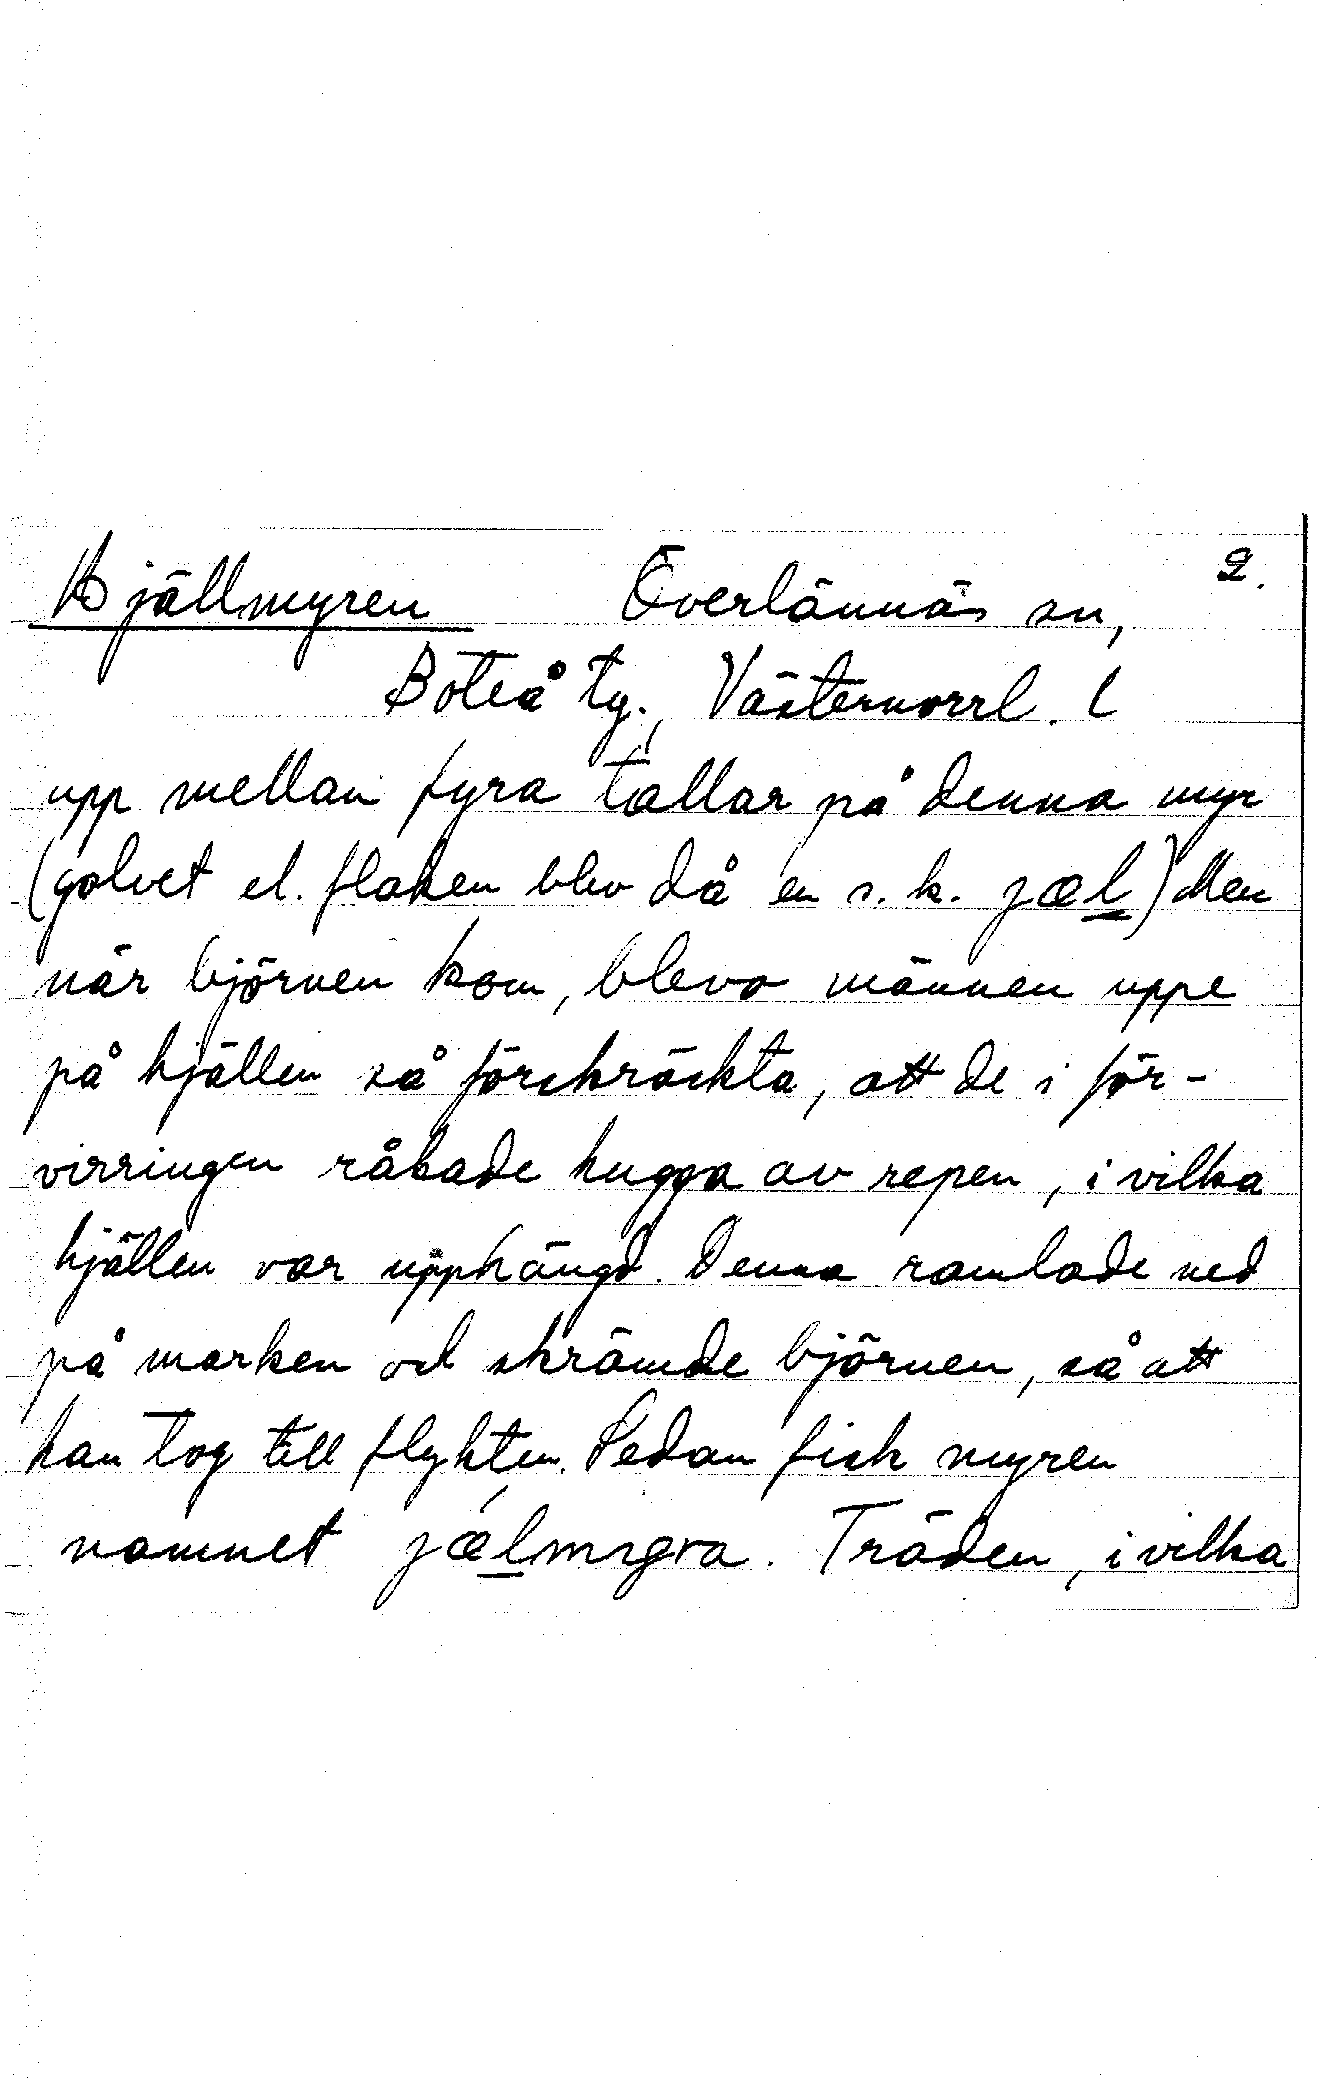 Hjällmyren Överlännäs sn, 2.
Boteå tg., Västernorrl. l
upp mellan fyra tallar på denna myr
(golvet el. flaken blev då en s. k. jæl) Men
när björnen kom, blevo männen uppe
på hjällen så förskräckta, att de i för-
virringen råkade hugga av repen, i vilka
hjällen var upphängd. Denna ramlade ned
på marken och skrämde björnen, så att
han tog till flykten. Sedan fick myren
namnet jælmyra. Träden, i vilka